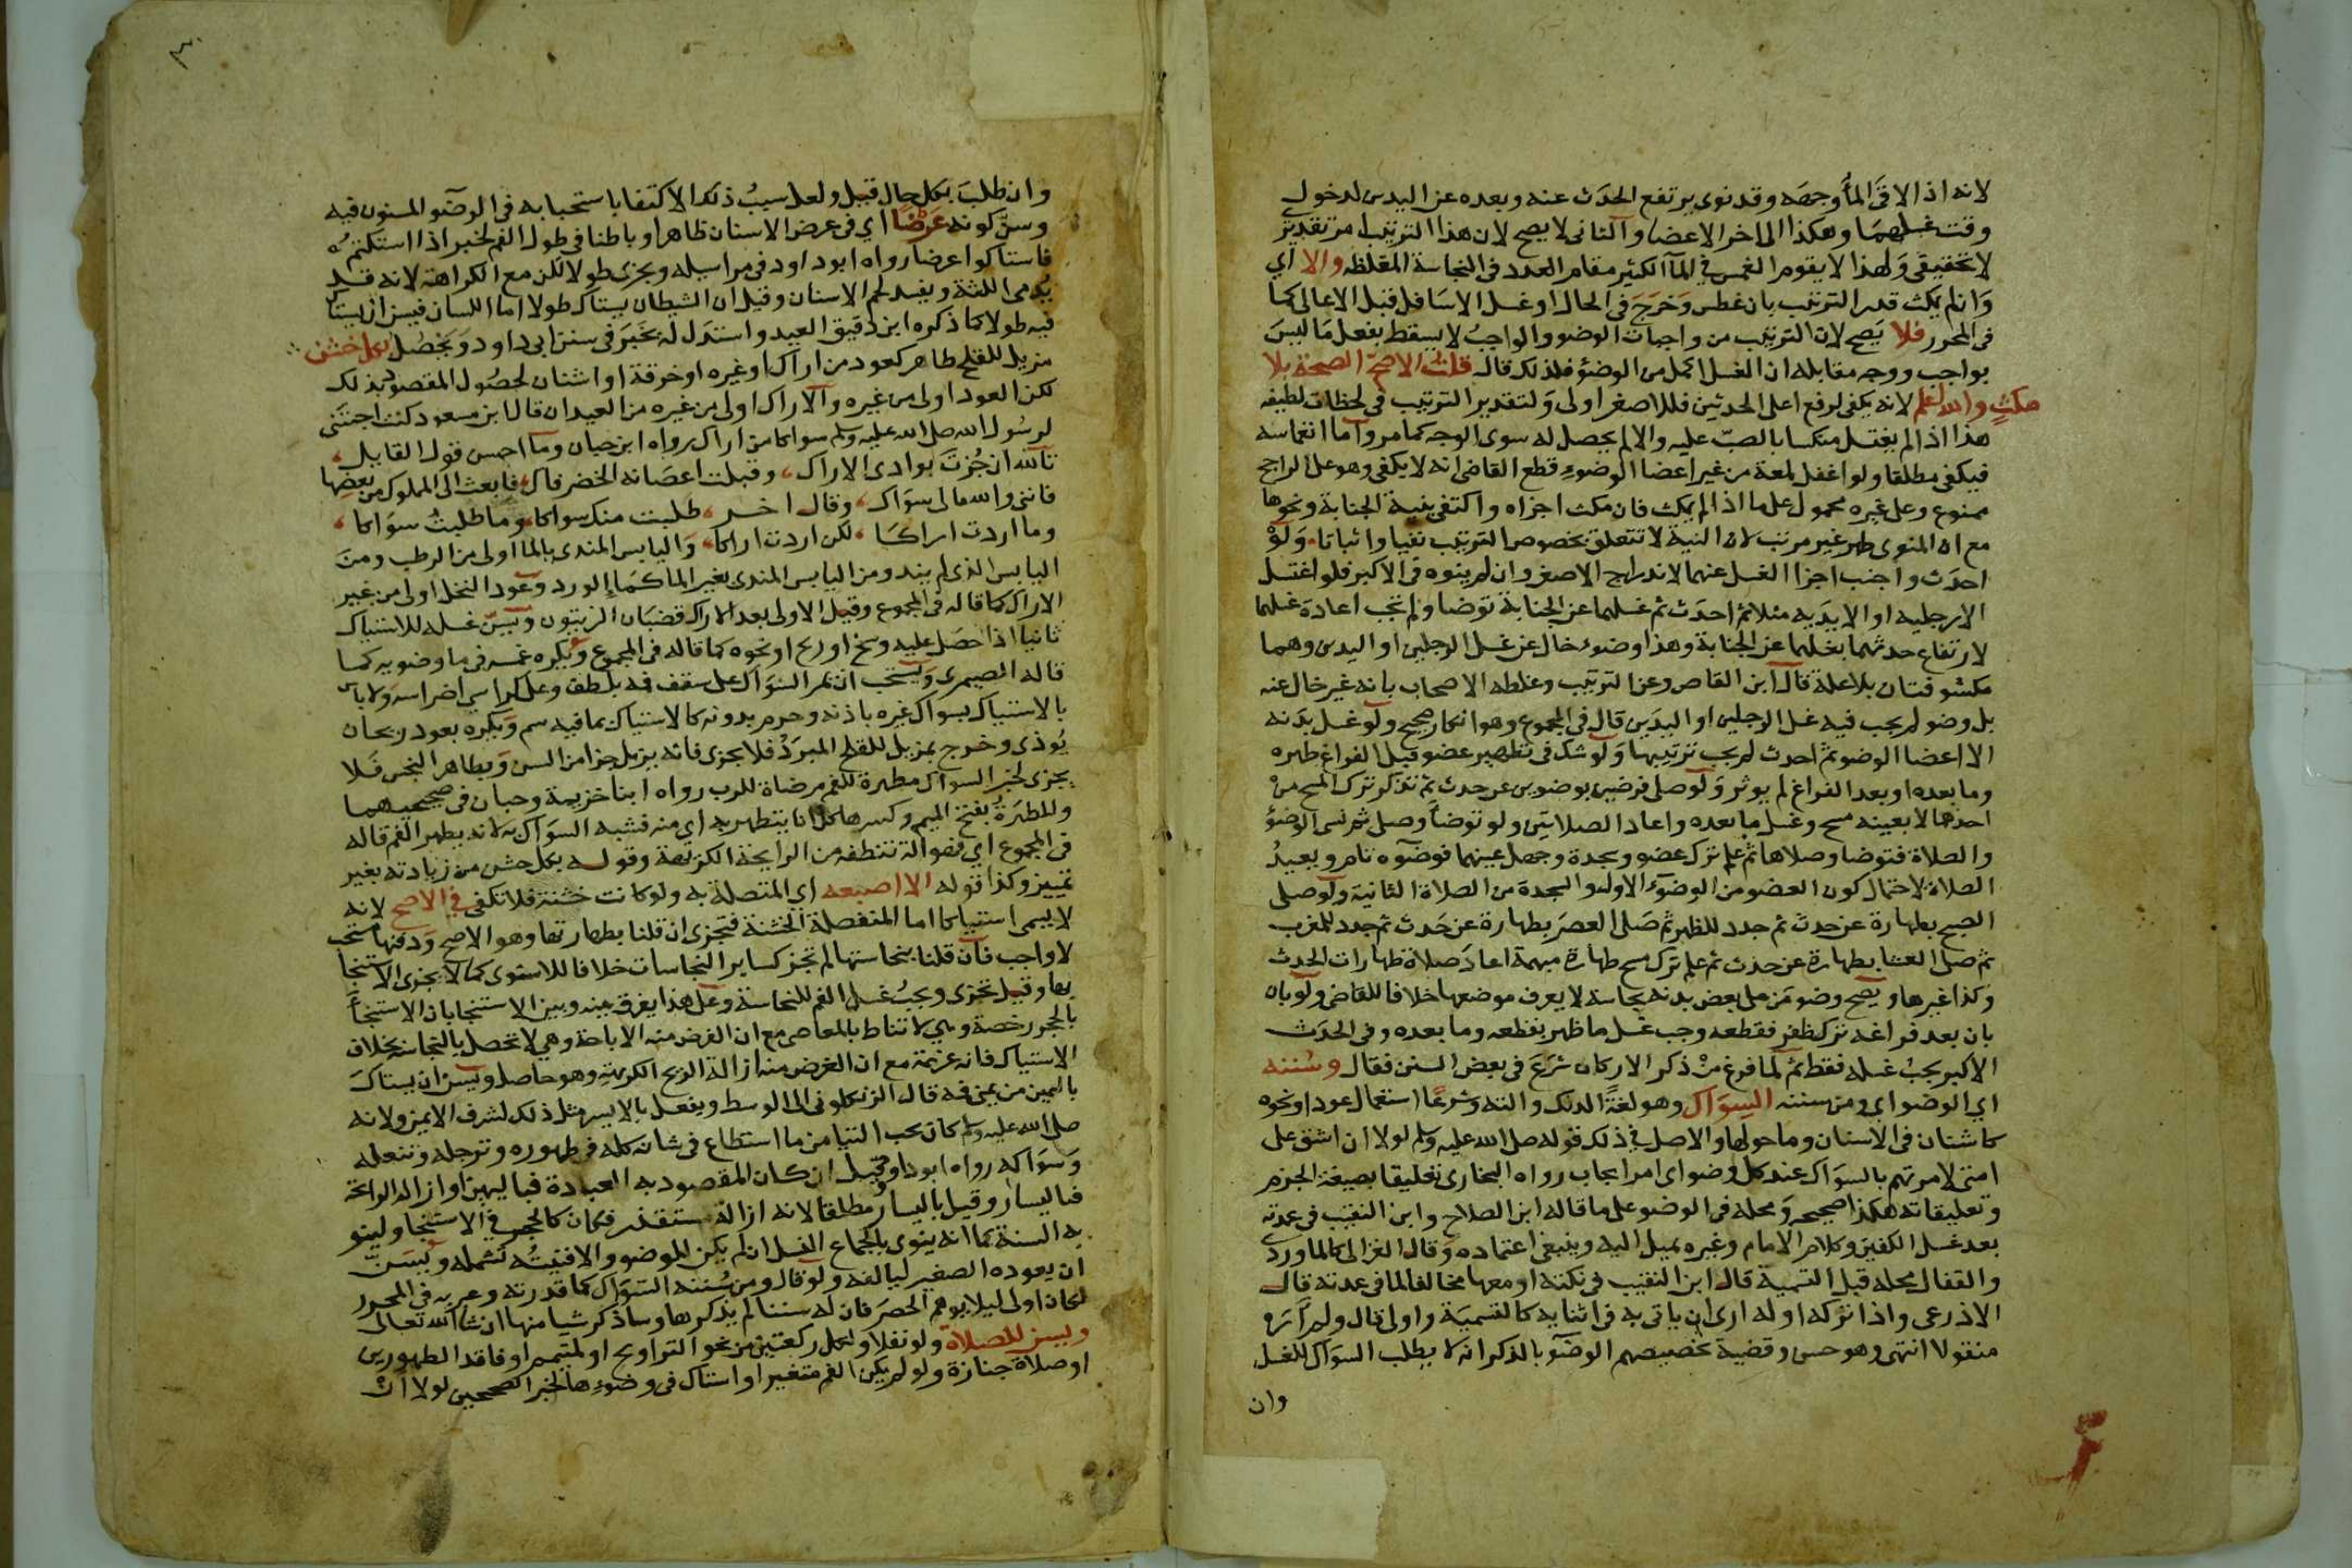 لانه اذا لاقى الماء وجهه وقد نوى يرتفع الحدث عنه وبعده عن اليدين لدخول
وقت غسلهما وهكذا الى اخر الاعضا والثانى لا يصح لان هذا الترتيب امر تقديرى
لا تحقيقى ولهذا لا يقوم الغمس فى المآ الكثير مقام العدد فى النجاسة المغلظه والا اي
وان لم يمكث قدر الترتيب بان غطس وخرج فى الحال او غسل الاسافل قبل الاعالى كما
فى المحرر فلا يصح لان الترتيب من واجبات الوضو والواجب لا يسقط بفعل ما ليس
بواجب ووجه مقابله ان الغسل اكمل من الوضؤ فلذلك قال قلت الاصح الصحة بلا
مكث والله اعلم لانه يكفى لرفع اعلى الحدثين فللاصغر اولى ولتقدير الترتيب فى لحظات لطيفه
هذا اذا لم يغتسل منكسا بالصب عليه والا لم يحصل له سوى الوجه كما مر واما انغماسه
فيكفى مطلقا ولو اغفل لمعة من غير اعضا الوضوء قطع القاضى انه لا يكفى وهو على الراجح
ممنوع وعلى غيره محمول على ما اذا لم يمكث فان مكث اجزاه واكتفى بنية الجنابة ونحوها
مع ان المنوى طهر غير مرتب لان النية لا تتعلق بخصوص الترتيب نفيا واثباتا ولو
احدث واجنب اجزا الغسل عنهما لاندراج الاصغر وان لم ينوه فى الاكبر فلو اغتسل
الا رجليه او الا يديه مثلا ثم احدث ثم غسلهما عن الجنابة توضا ولم تجب اعادة غسلهما
لارتفاع حدثهما بغسلهما عن الجنابة وهذا وضوء خال عن غسل الرجلين او اليدين وهما
مكشوفتان بلا علة قال ابن القاص وعن الترتيب وغلطه الاصحاب بانه غير خال عنه
بل وضو لم يجب فيه غسل الرجلين او اليدين قال فى المجموع وهو انكار صحيح ولو غسل بدنه
الا اعضا الوضو ثم احدث لم يجب ترتيبها ولو شك فى تطهير عضو قبل الفراغ طهره
وما بعده او بعد الفراغ لم يوثر ولو صلى فرضين بوضوين عن حدث ثم تذكر ترك المسح من
احدهما لا بعينه مسح وغسل ما بعده واعاد الصلاتين ولو توضأ وصلى ثم نسى الوضؤ
والصلاة فتوضا وصلاها ثم علم ترك عضو وسجدة وجهل عينهما فوضوه تام ويعيد
الصلاة لاحتمال كون العضو من الوضوء الاول والسجدة من الصلاة الثانية ولو صلى
الصبح بطهارة عن حدث ثم جدد للظهر ثم صلى العصر بطهارة عن حدث ثم جدد للمغرب
ثم صلى العشا بطهارة عن حدث ثم علم ترك مسح طهارة مبهمة اعاد صلاة طهارات الحدث
وكذا غيرها ويصح وضو من على بعض بدنه نجاسة لا يعرف موضعها خلافا للقاضى ولو بان
بان بعد فراغه ترك ظفر فقطعه وجب غسل ما ظهر بقطعه وما بعده وفى الحدث
الاكبر يجب غسله فقط ثم لما فرغ من ذكر الاركان شرع فى بعض السنن فقال وسننه
اي الوضو اي ومن سننه السواك وهو لغة الدلك والته وشرعا استعمال عود او نحوه
كاشنان فى الاسنان وما حولها والاصل فى ذلك قوله صلى الله عليه وسلم لولا ان اشق على
امتى لامرتهم بالسواك عند كل وضو اى امر ايجاب رواه البخارى تعليقا بصيغة الجزم
وتعليقاته هكذا صحيحه ومحله فى الوضو على ما قاله ابن الصلاح وابن النقيب فى عمدته
بعد غسل الكفين وكلام الامام وغيره يميل اليه وينبغى اعتماده وقال الغزالى كالماوردى
والقفال محله قبل التسمية قال ابن النقيب فى نكته او معها مخالفا لما فى عمدته قال
الاذرعى واذا تركه اوله ارى ان ياتى به فى اثنايه كالتسمية واولى قال ولم اره
منقولا انتهى وهو حسن وقضية تخصيصهم الوضو بالذكر انه لا يطلب السواك للغسل
وان
٣
وان طلب بكل حال قيل ولعل سبب ذلك الاكتفا باستحبابه فى الوضو المسنون فيه
وسن كونه عرضا اي فى عرض الاسنان ظاهرا وباطنا فى طول الفم لخبر اذا استكتم
فاستاكوا عرضا رواه ابو داود فى مراسيله ويجزى طولا لكن مع الكراهة لانه قد
يدمى اللثة ويفسد لحم الاسنان وقيل ان الشيطان يستاك طولا اما اللسان فيسن ان يستاك
فيه طولا كما ذكره ابن دقيق العيد واستدل له بخبر فى سنن ابى داود ويحصل بكل خشن
مزيل للقلح طاهر كعود من اراك او غيره او خرقة او اشنان لحصول المقصود بذلك
لكن العود اولى من غيره والاراك اولى من غيره من العيدان قال ابن مسعود كنت اجتنى
لرسول الله صلى الله عليه وسلم سواكا من اراك رواه ابن حبان وما احسن قول القايل
تالله ان جزت بوادى الاراك وقبلت اعصانه الخضر فاك فابعث الى المملوك من بعضها
فاننى والله مالى سواك وقال اخر طلبت منك سواكا وما طلبت سواكا
وما اردت اراكا لكن اردت اراكا واليابس المندى بالما اولى من الرطب ومن
اليابس الذى لم يند ومن اليابس المندى بغير الما كماء الورد وعود النخل اولى من غير
الاراك كما قاله فى المجموع وقيل الاولى بعد الاراك قضبان الزيتون ويسن غسله للاستياك
ثانيا اذا حصل عليه وسخ او ريح او نحوه كما قاله فى المجموع ويكره غمسه فى ما وضويه كما
قاله الصيمرى ويستحب ان يمر السواك على سقف فمه بلطف وعلى كراسى اضراسه ولا باس
بالاستياك بسواك غيره باذنه وحرم بدونه كالاستياك بما فيه سم ويكره بعود ريحان
يوذى وخرج بمزيل للقلح المبرد فلا يجزى فانه يزيل جزا من السن وبطاهر النجس فلا
يجزى لخبر السواك مطهرة للفم مرضاة للرب رواه ابنا خزيمة وحبان فى صحيحيهما
والمطهرة بفتح الميم وكسرها كل انا يتطهر به اي منه فشبه السواك به لانه يطهر الفم قاله
فى المجموع اي فهو الة تنظفه من الرايحة الكريهة وقوله بكل خشن من زيادته بغير
تمييز وكذا قوله الا اصبعه اي المتصلة به ولو كانت خشنة فلا تكفى فى الاصح لانه
لا يسمى استياكا اما المنفصلة الخشنة فتجزى ان قلنا بطهارتها وهو الاصح ودفنها مستحب
لا واجب فان قلنا بنجاستها لم تجز كساير النجاسات خلافا للاسنوى كما لا يجزى الاستنجا
بها وقيل تجزى ويجب غسل الفم للنجاسة وعلى هذا يفرق بينه وبين الاستنجا بان الاستنجأ
بالحجر رخصة وهي لا تناط بالمعاصى مع ان الغرض منه الاباحة وهي لا تحصل بالنجاسة بخلاف
الاستياك فانه عزيمة مع ان الغرض منه ازالة الريح الكريهة وهو حاصل ويسن ان يستاك
باليمين من يمنى فمه قال الزنكلونى الى الوسط ويفعل بالايسر مثل ذلك لشرف الايمن ولانه
صلى الله عليه وسلم كان يحب التيامن ما استطاع فى شانه كله فى طهوره وترجله وتنعله
وسواكه رواه ابو داود وقيل ان كان المقصود به العبادة فباليمين او ازالة الرائحة
فباليسار وقيل باليسار مطلقا لانه ازالة مستقذر فكان كالحجر فى الاستنجا ولينو
به السنة كما انه ينوى بالجماع الغسل ان لم يكن للوضو والا فنيته تشمله ويسن
ان يعوده الصغير ليالفه ولو قال ومن سننه السواك كما قدرته وعبر به فى المحرر
لكان اولى ليلا يوهم الحصر فان له سننا لم يذكرها وساذكر شيا منها ان شا الله تعالى
ويسن للصلاة ولو نفلا ولكل ركعتين من نحو التراويح او لمتيمم او فاقد الطهورين
او صلاة جنازة ولو لم يكن الفم متغيرا او استاك فى وضوءها لخبر الصحيحين لولا ان